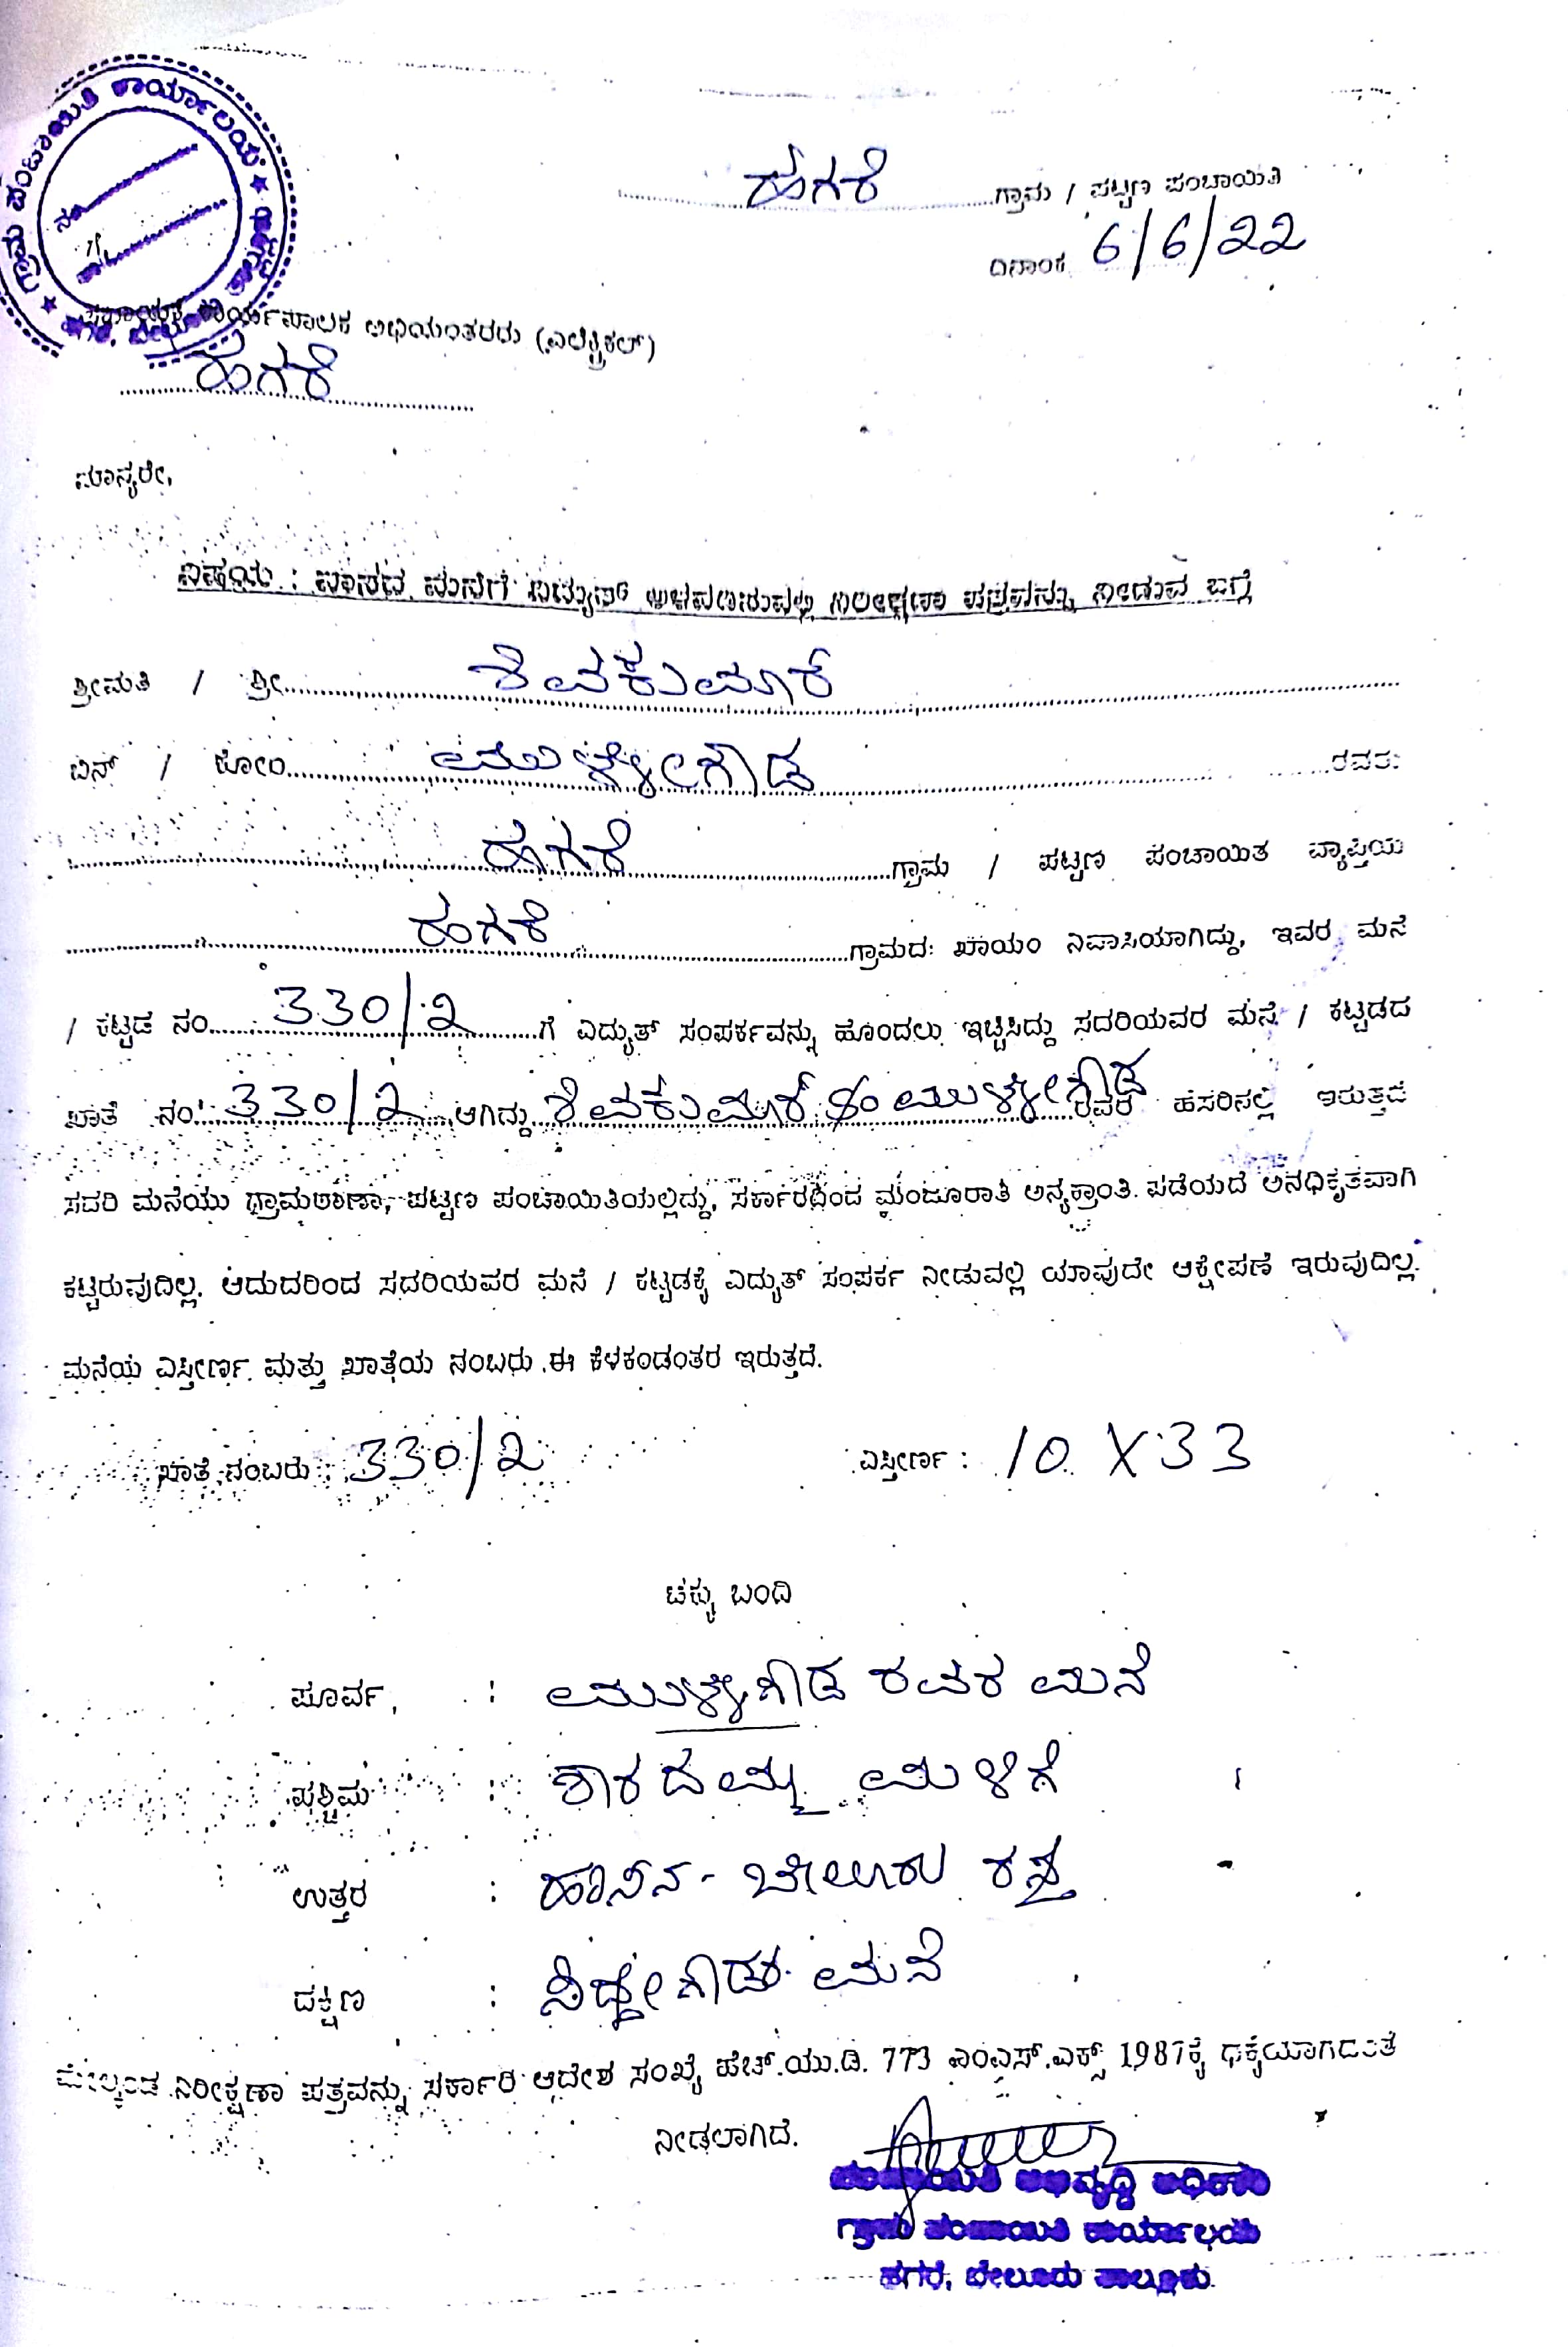 ಗ್ರಾಮ ಪಂಚಾಯಿತಿ ಕಾರ್ಯಾಲಯ
ನಂ
ಹಗರೆ ಗ್ರಾಮ / ಪಟ್ಟಣ ಪಂಚಾಯಿತಿ
ದಿನಾಂಕ 6/6/22
ಸಹಾಯಕ ಕಾರ್ಯಪಾಲಕ ಅಭಿಯಂತರರು (ಎಲೆಕ್ಟ್ರಿಕಲ್)
ಹಗರೆ
ಮಾನ್ಯರೇ,
ವಿಷಯ : ವಾಸದ ಮನೆಗೆ ವಿದ್ಯುತ್ ಅಳವಡಿಸುವಲ್ಲಿ ನಿರೀಕ್ಷಣಾ ಪತ್ರವನ್ನು ನೀಡುವ ಬಗ್ಗೆ
ಶ್ರೀಮತಿ / ಶ್ರೀ ಶಿವಕುಮಾರ್
ಬಿನ್ / ಕೋಂ ಮುಳ್ಳೇಗೌಡ ರವರು
ಹಗರೆ ಗ್ರಾಮ / ಪಟ್ಟಣ ಪಂಚಾಯಿತ ವ್ಯಾಪ್ತಿಯ
ಹಗರೆ ಗ್ರಾಮದ ಖಾಯಂ ನಿವಾಸಿಯಾಗಿದ್ದು, ಇವರ ಮನೆ
/ ಕಟ್ಟಡ ನಂ. 330/2 ಗೆ ವಿದ್ಯುತ್ ಸಂಪರ್ಕವನ್ನು ಹೊಂದಲು ಇಚ್ಛಿಸಿದ್ದು ಸದರಿಯವರ ಮನೆ / ಕಟ್ಟಡದ
ಖಾತೆ ನಂ 330/2 ಆಗಿದ್ದು ಶಿವಕುಮಾರ್ ಬಿಂ ಮುಳ್ಳೇಗೌಡ ರವರ ಹೆಸರಿನಲ್ಲಿ ಇರುತ್ತದೆ
ಸದರಿ ಮನೆಯು ಗ್ರಾಮಠಾಣಾ, ಪಟ್ಟಣ ಪಂಚಾಯಿತಿಯಲ್ಲಿದ್ದು, ಸರ್ಕಾರದಿಂದ ಮಂಜೂರಾತಿ ಅನ್ಯಕ್ರಾಂತಿ. ಪಡೆಯದೆ ಅನಧಿಕೃತವಾಗಿ
ಕಟ್ಟಿರುವುದಿಲ್ಲ. ಆದುದರಿಂದ ಸದರಿಯವರ ಮನೆ / ಕಟ್ಟಡಕ್ಕೆ ವಿದ್ಯುತ್ ಸಂಪರ್ಕ ನೀಡುವಲ್ಲಿ ಯಾವುದೇ ಆಕ್ಷೇಪಣೆ ಇರುವುದಿಲ್ಲ.
ಮನೆಯ ವಿಸ್ತೀರ್ಣ ಮತ್ತು ಖಾತೆಯ ನಂಬರು ಈ ಕೆಳಕಂಡಂತರ ಇರುತ್ತದೆ.
ಖಾತೆ ನಂಬರು : 330/2 ವಿಸ್ತೀರ್ಣ : 10 X 33
ಚಕ್ಕು ಬಂದಿ
ಪೂರ್ವ : ಮುಳ್ಳೇಗೌಡ ರವರ ಮನೆ
ಪಶ್ಚಿಮ : ಶಾರದಮ್ಮ ಮಳಿಗೆ
ಉತ್ತರ : ಹಾಸನ - ಬೇಲೂರು ರಸ್ತೆ
ದಕ್ಷಿಣ : ಸಿದ್ದೇಗೌಡರ ಮನೆ
ಮೇಲ್ಕಂಡ ನಿರೀಕ್ಷಣಾ ಪತ್ರವನ್ನು ಸರ್ಕಾರಿ ಆದೇಶ ಸಂಖ್ಯೆ ಹೆಚ್.ಯು.ಡಿ. 773 ಎಂಎಸ್.ಎಕ್ಸ್ 1987ಕ್ಕೆ ಧಕ್ಕೆಯಾಗದಂತೆ
ನೀಡಲಾಗಿದೆ.
ಪಂಚಾಯಿತಿ ಅಭಿವೃದ್ಧಿ ಅಧಿಕಾರಿ
ಗ್ರಾಮ ಪಂಚಾಯಿತಿ ಕಾರ್ಯಾಲಯ
ಹಗರೆ, ಬೇಲೂರು ತಾಲ್ಲೂಕು.